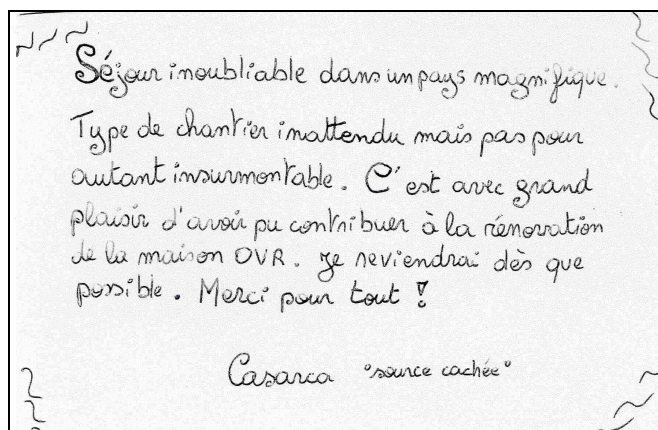 Séjour inoubliable dans un pays magnifique.
Type de chantier inattendu mais pas pour
autant insurmontable. C'est avec grand
plaisir d'avoir pu contribuer à la rénovation
de la maison OVR. Je reviendrai dès que
possible. Merci pour tout !
Casarca "source cachée"